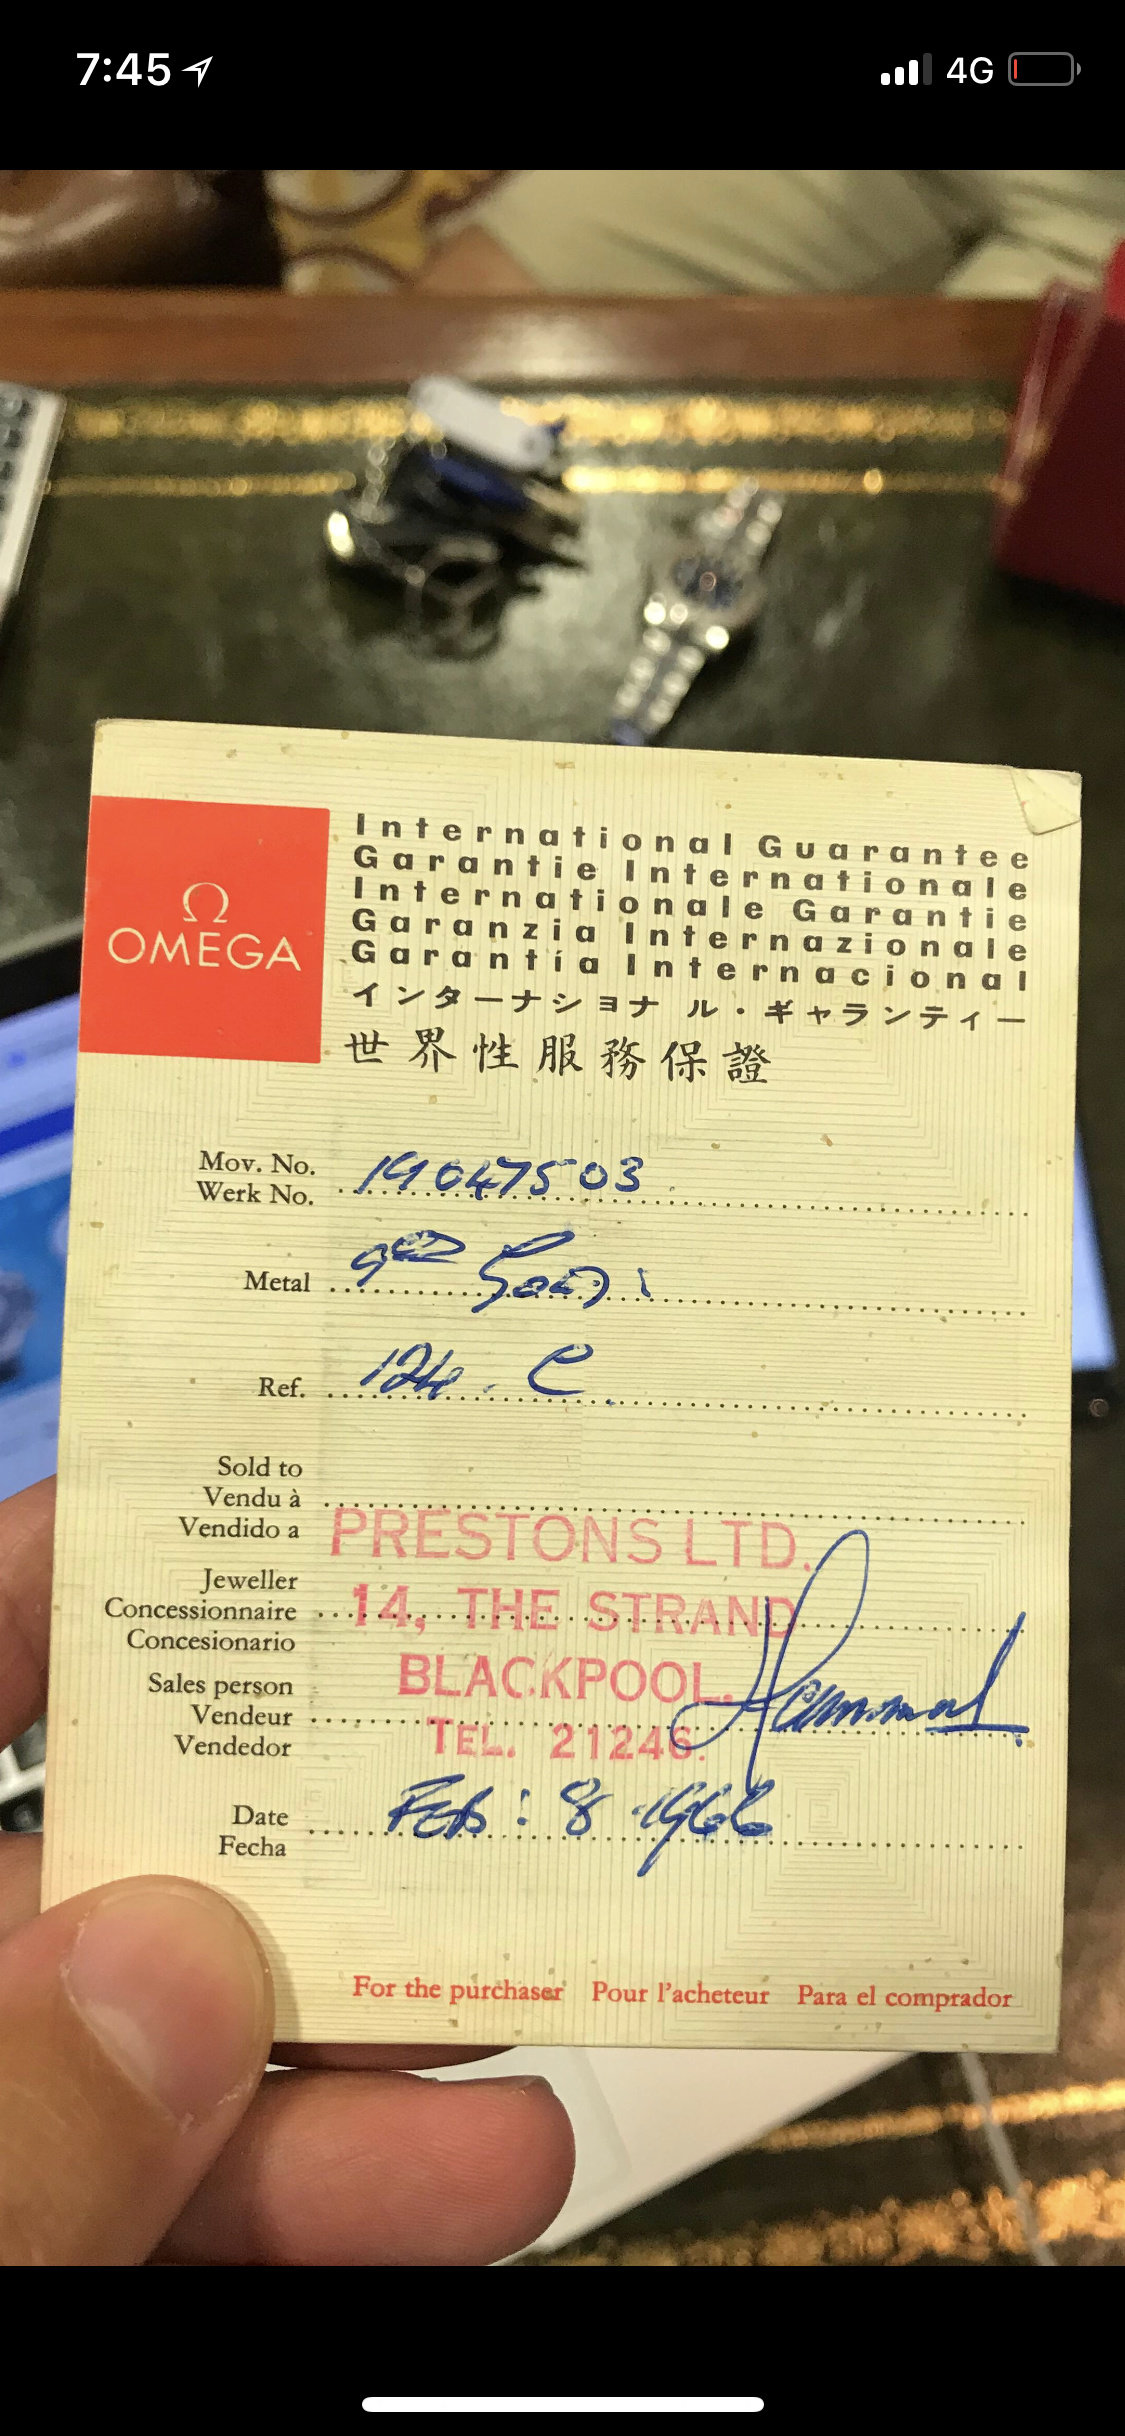 7:45
4G
Ω
OMEGA
International Guarantee
Garantie Internationale
Internationale Garantie
Garanzia Internazionale
Garantía Internacional
インターナショナル・ギャランティー
世界性服務保證
Mov. No.
Werk No. 19047503
Metal 9
Ref. 124. C
Sold to
Vendu à
Vendido a
PRESTONS LTD.
Jeweller
Concessionnaire 14, THE STRAND
Concesionario
BLACKPOOL.
Sales person
Vendeur
Vendedor TEL. 21246.
Date FEB: 8 1966
Fecha
For the purchaser Pour l'acheteur Para el comprador